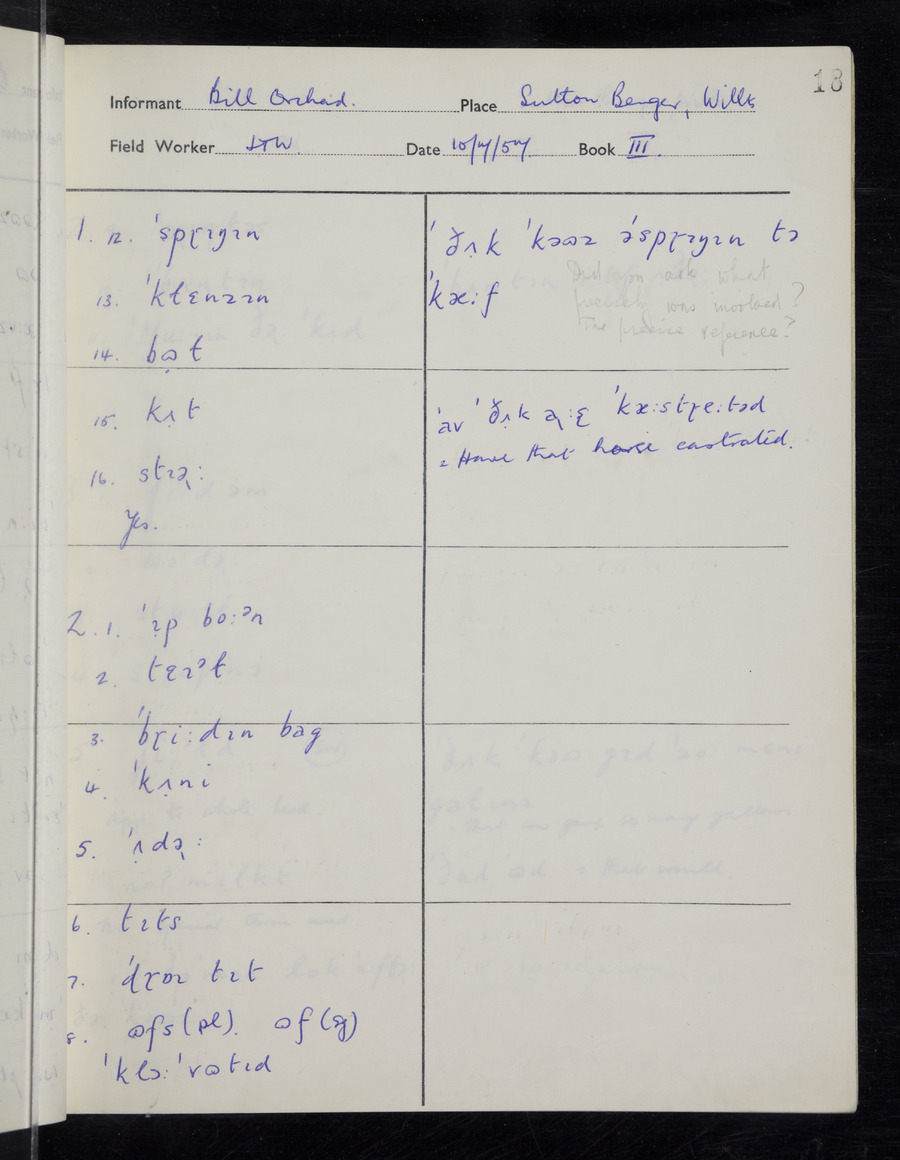 18
Informant Bill Orchard. Place Sutton Benger, Wilts
Field Worker JTW. Date 10/4/54 Book III.
1. 12. ˈspɽɪŋɪn
ˈðʌk ˈkəʊɪ əˈspɽɪŋɪn tə
ˈkæːf
Did you ask what
precisely was involved?
The precise reference?
13. ˈklɛnzɪn
14. bʊt
15. kɪt
ˈav ˈðʌk ˈkæːstɽeːtəd
= Have that horse castrated.
16. stɪəː
Yes.
2. 1. ˈɪp boːᵊn
2. tɛɪᵊt
3. ˈbɽiːdɪn bag
4. ˈkʌni
5. ˈʌdəː
6. tɪts
7. ˈdɽɒɪ tɪt
8. ɒfs (pl). ɒf (sg)
ˈklɔːˈvɒtɪd